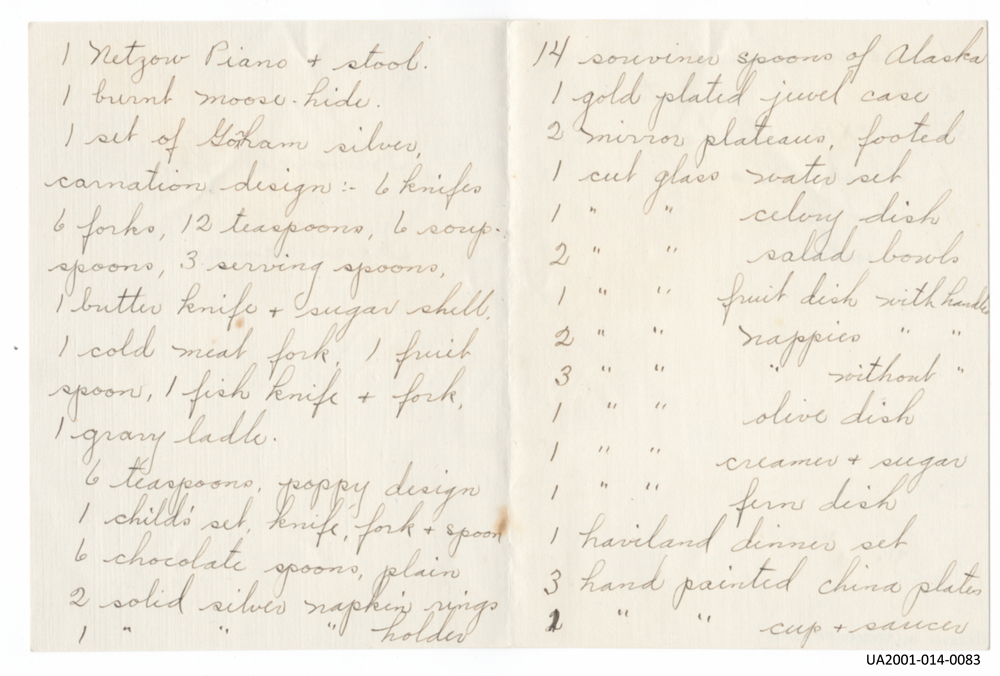 1 Netzow Piano + stool.
1 burnt moose-hide.
1 set of Gorham silver,
carnation design:- 6 knifes
6 forks, 12 teaspoons, 6 soup-
spoons, 3 serving spoons,
1 butter knife + sugar shell,
1 cold meat fork, 1 fruit
spoon, 1 fish knife + fork,
1 gravy ladle.
6 teaspoons, poppy design
1 child's set, knife, fork + spoon
6 chocolate spoons, plain
2 solid silver napkin rings
1 " " " holder
14 souviner spoons of Alaska
1 gold plated jewel case
2 mirror plateaus, footed
1 cut glass water set
1 " " celery dish
2 " " salad bowls
1 " " fruit dish with handle
2 " " nappies " "
3 " " " without "
1 " " olive dish
1 " " creamer + sugar
1 " " fern dish
1 haviland dinner set
3 hand painted china plates
1 " " cup + saucer
UA2001-014-0083